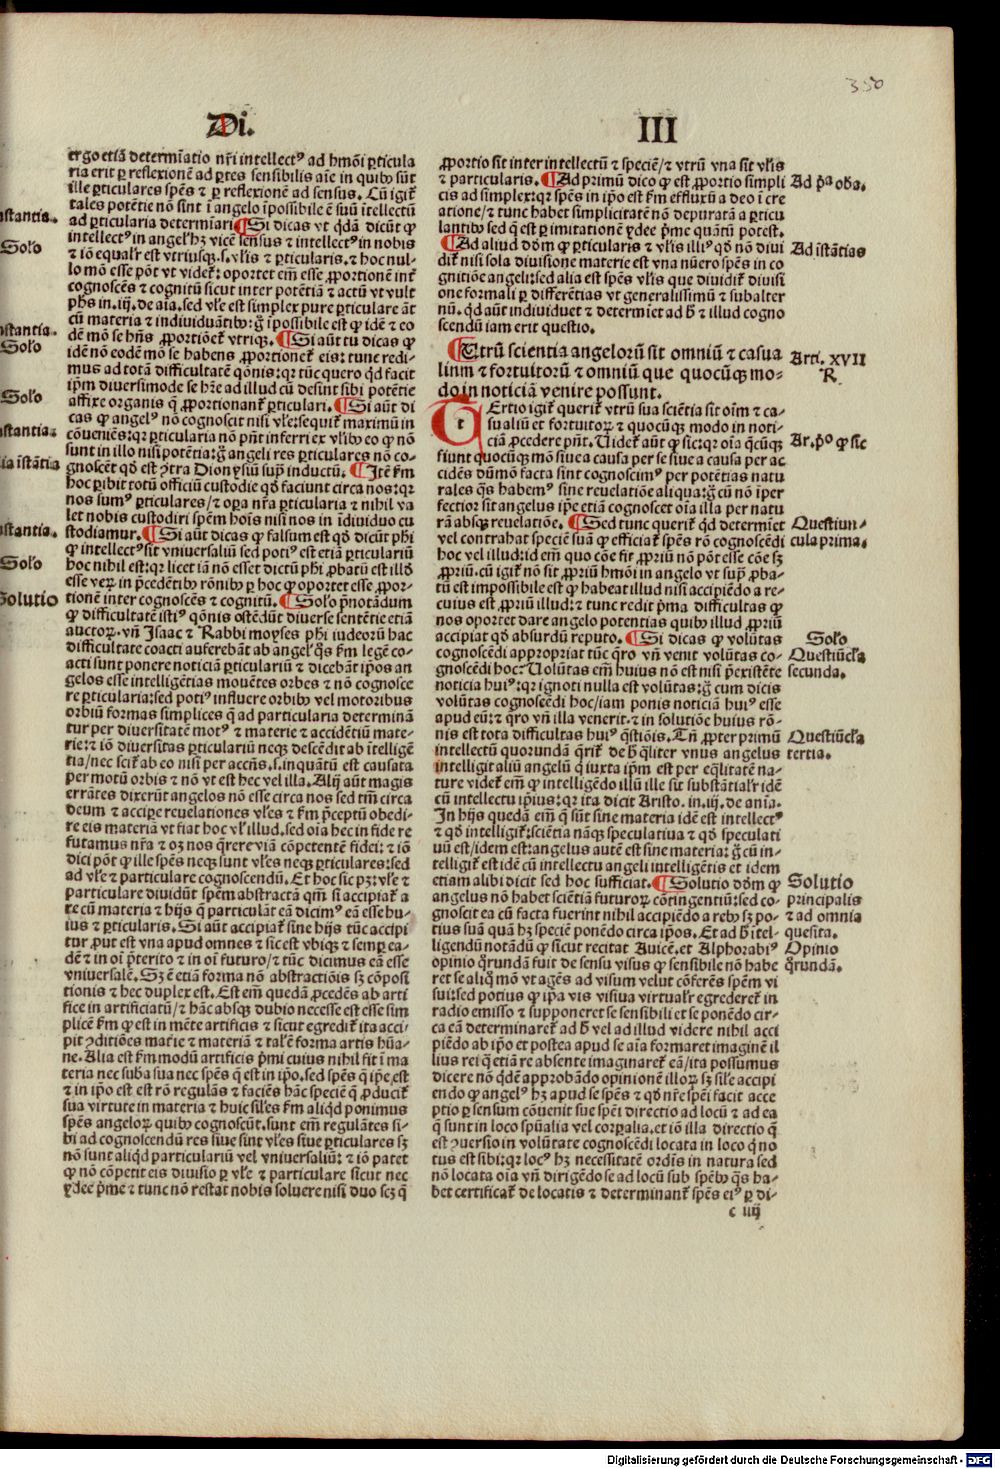 350
Di.
III
ergo etiā determīatio nr̄i intellectꝰ ad hmōi ꝑticula
ria erit ꝑ reflexionē ad ꝑtes sensibilis aīe in quibꝰ sūt
ille ꝑticulares spēs ⁊ ꝑ reflexionē ad sensus. Cū igit̄
tales potētie nō sint ī angelo īpossibile ē suū ītellectū
ad ꝑticularia determīari ¶ Si dicas vt qͥdā dicūt ꝙ
intellectꝰ in angelꝰ hꝫ vicē sensus ⁊ intellectꝰ in nobis
⁊ iō equalꝛ̄ est vtriusqꝫ.s.vl̄is ⁊ ꝑticularis.⁊ hoc nul⸗
lo mō esse pōt vt videt̄: oportet em̄ esse ꝓportionē int̄
cognoscēs ⁊ cognitū sicut inter potētiā ⁊ actū vt vult
ph̄s in.iij.de aīa.sed vl̄e est simplex pure ꝑticulare āt
cū materia ⁊ indiuiduātibꝰ: g̊ īpossibile est ꝙ idē ⁊ eo
dē mō se hn̄s ꝓportiōet̄ vtriqꝫ. ¶ Si aūt tu dicas ꝙ
idē nō eodē mō se habens ꝓportionet̄ eis: tunc redi⸗
mus ad totā difficultatē qōnis: qꝛ tūc quero qͥd facit
ip̄m diuersimode se hr̄e ad illud cū desint sibi potētie
affixe organis q̄ ꝓportionant̄ ꝑticulari. ¶ Si aūt di
cas ꝙ angelꝰ nō cognoscit nisi vl̄e: sequit̄ maximū in
cōueniēs: qꝛ ꝑticularia nō pn̄t inferri ex vl̄ibꝰ eo ꝙ nō
sunt in illo nisi potētia: g̊ angeli res ꝑticulares nō co⸗
gnoscēt qd̄ est ꝯtra Dionysiū supͥ inductū. ¶ Itē ẜm
hoc ꝑibit totū officiū custodie qd̄ faciunt circa nos: qꝛ
nos sumꝰ ꝑticulares/⁊ oꝑa nr̄a ꝑticularia ⁊ nihil va
let nobis custodiri spēm hoīs nisi nos in īdiuiduo cu
stodiamur. ¶ Si aūt dicas ꝙ falsum est qd̄ dicūt phi
ꝙ intellectꝰ sit vniuersaliū sed potiꝰ est etiā ꝑticulariū
hoc nihil est: qꝛ licet iā nō esset dictū phī ꝓbatū est illd̄
esse veꝝ in p̄cedētibꝰ rōnibꝰ ꝑ hoc ꝙ oportet esse ꝓpor⸗
tionē inter cognoscēs ⁊ cognitū. ¶ Sol̄o p̄notādum
ꝙ difficultatē istiꝰ qōnis ostēdūt diuerse sentētie etiā
auctoꝝ. vn̄ Isaac ⁊ Rabbi moyses phī iudeorū hac
difficultate coacti auferebāt ab angelꝰ qͦs ẜm legē co⸗
acti sunt ponere noticiā ꝑticulariū ⁊ dicebāt ip̄os an
gelos esse intelligētias mouētes orbes ⁊ nō cognosce
re ꝑticularia: sed potiꝰ influere orbibꝰ vel motoribus
orbiū formas simplices q̄ ad particularia determinā
tur per diuersitatē motꝰ ⁊ materie ⁊ accidētiū mate⸗
rie: ⁊ iō diuersitas ꝑticulariū neqꝫ descēdit ab ītelligē
tia/nec scit̄ ab eo nisi per accn̄s.s.inquātū est causata
per motū orbis ⁊ nō vt est hec vel illa. Alij aūt magis
errātes dixerūt angelos nō esse circa nos sed tm̄ circa
deum ⁊ accipe reuelationes vl̄es ⁊ ẜm p̄ceptū obedi⸗
re eis materiā vt fiat hoc vl̓ illud. sed oīa hec in fide re
futamus nr̄a ⁊ oꝫ nos q̄rere viā cōpetentē fidei: ⁊ iō
dici pōt ꝙ ille spēs neqꝫ sunt vl̄es neqꝫ ꝑticulares: sed
ad vl̄e ⁊ particulare cognoscendū. Et hoc sic pꝫ: vl̄e ⁊
particulare diuidūt spēm abstractā qm̄ si accipiat̄ a
re cū materia ⁊ hijs q̄ particulāt eā dicimꝰ eā esse hu⸗
ius ⁊ ꝑticularis. Si aūt accipiat̄ sine hijs tūc accipi
tur ꝓut est vna apud omnes ⁊ sic est vbiqꝫ ⁊ semꝑ ea⸗
dē ⁊ in oī p̄terito ⁊ in oī futuro/⁊ tūc dicimus eā esse
vniuersalē. Sꝫ ē etiā forma nō abstractiōis sꝫ cōposi
tionis ⁊ hec duplex est. Est em̄ quedā ꝓcedēs ab arti
fice in artificiatū/⁊ hāc absqꝫ dubio necesse est esse sim
plicē ẜm ꝙ est in mēte artificis ⁊ sicut egredit̄ ita acci⸗
pit ꝯditiōes mat̓ie ⁊ materiā ⁊ talē forma artis hūa⸗
ne. Alia est ẜm modū artificis pͥmi cuius nihil fit ī ma
teria nec suba sua nec spēs q̄ est in ip̄o. sed spēs q̄ ip̄e est
⁊ in ip̄o est est rō regulās ⁊ faciēs hāc speciē q̄ ꝓducit̄
sua virtute in materia ⁊ huic sil̄es ẜm aliqͥd ponimus
spēs angeloꝝ quibꝰ cognoscūt. sunt em̄ regulātes si⸗
bi ad cognoscendū res siue sint vl̄es siue ꝑticulares sꝫ
nō sunt aliqͥd particulariū vel vniuersaliū: ⁊ iō patet
ꝙ nō cōpetit eis diuisio ꝑ vl̄e ⁊ particulare sicut nec
ꝯdee pͥme ⁊ tunc nō restat nobis soluere nisi duo scꝫ ꝙ
nstantia.
Sol̄o
nstantia.
Sol̄o
Sol̄o
nstantia.
ia īstātia
nstantia.
Sol̄o
Solutio
ꝓportio sit inter intellectū ⁊ speciē/⁊ vtrū vna sit vl̄is
⁊ particularis. ¶ Ad primū dico ꝙ est ꝓportio simpli
cis ad simplex: qꝛ spēs in ip̄o est ẜm effluxū a deo ī cre
atione/⁊ tunc habet simplicitatē nō depuratā a ꝑticu
lantibꝰ sed q̄ est ꝑ imitationē ꝯdee pͥme quantū potest.
¶ Ad aliud dōm ꝙ ꝑticularis ⁊ vl̄is illiꝰ qd̄ nō diui
dit̄ nisi sola diuisione materie est vna nūero spēs in co
gnitiōe angeli: sed alia est spēs vl̄is que diuidit̄ diuisi
one formali ꝑ differētias vt generalissimū ⁊ subalter
nū. qͥd aūt indiuiduet ⁊ determīet ad ħ ⁊ illud cogno
scendū iam erit questio.
¶ Utrū scientia angelorū sit omniū ⁊ casua
lium ⁊ fortuitorū ⁊ omniū que quocūqꝫ mo⸗
do in noticiā venire possunt.
Tertio igit̄ querit̄ vtrū sua sciētia sit oīm ⁊ ca⸗
sualiū et fortuitoꝝ ⁊ quocūqꝫ modo in noti⸗
ciā ꝓcedere pn̄t. Videt̄ aūt ꝙ sic: qꝛ oīa q̄cūqꝫ
fiunt quocūqꝫ mō siue a causa per se siue a causa per ac
cidēs dūmō facta sint cognoscimꝰ per potētias natu
rales qͣs habemꝰ sine reuelatiōe aliqua: g̊ cū nō īper
fectior sit angelus ip̄e etiā cognoscet oīa illa per natu
rā absqꝫ reuelatiōe. ¶ Sed tunc querit̄ qͥd determīet
vel contrahat speciē suā ꝙ efficiat̄ spēs rō cognoscēdi
hoc vel illud: id em̄ quo cōe fit ꝓpriū nō pōt esse cōe sꝫ
ꝓpriū. cū igit̄ nō sit ꝓpriū hmōi in angelo vt supͣ ꝓba⸗
tū est impossibile est ꝙ habeat illud nisi accipiēdo a re⸗
cuius est ꝓpriū illud: ⁊ tunc redit pͥma difficultas ꝙ
nos oportet dare angelo potentias quibꝰ illud ꝓpriū
accipiat qd̄ absurdū reputo. ¶ Si dicas ꝙ volūtas
cognoscēdi appropriat tūc qͣro vn̄ venit volūtas co⸗
gnoscēdi hoc? Volūtas em̄ huius nō est nisi p̄existēte
noticia huiꝰ: qꝛ ignoti nulla est volūtas: g̊ cum dicis
volūtas cognoscēdi hoc/iam ponis noticiā huiꝰ esse
apud eū: ⁊ qͣro vn̄ illa venerit. ⁊ in solutiōe huius rō⸗
nis est tota difficultas huiꝰ qͣstiōis. Tn̄ ꝓpter primū
intellectū quorundā qͣrit̄ de ħ qͣliter vnus angelus
intelligit aliū angelū q̄ iuxta ip̄m est per eqͣlitatē na⸗
ture videt̄ em̄ ꝙ intelligēdo illū ille sit substātialꝛ̄ idē
cū intellectu ipsius: qꝛ ita dicit Aristo. in.iij.de anīa.
In hijs quedā em̄ q̄ sūt sine materia idē est intellectꝰ
⁊ qd̄ intelligit̄: sciētia nāqꝫ speculatiua ⁊ qd̄ speculati
uū est/idem est: angelus autē est sine materia: g̊ cū in⸗
telligit̄ est idē cū intellectu angeli intelligētis et idem
etiam alibi dicit sed hoc sufficiat. ¶ Solutio dōm ꝙ
angelus nō habet sciētiā futuroꝝ cōtingentiū: sed co⸗
gnoscit ea cū facta fuerint nihil accipiēdo a rebꝰ sꝫ po⸗
tius suā quā hꝫ speciē ponēdo circa ip̄os. Et ad ħ itel⸗
ligendū notādū ꝙ sicut recitat Auicē. et Alphorabiꝰ
opinio qͦrundā fuit de sensu visus ꝙ sensibile nō habe
ret se aliqͦ mō vt agēs ad visum velut cōferēs spēm vi
sui: sed potius ꝙ ip̄a vis visiua virtualꝛ̄ egrederet̄ in
radio emisso ⁊ supponeret se sensibili et se ponēdo cir⸗
ca eā determinaret̄ ad ħ vel ad illud videre nihil acci
piēdo ab ip̄o et postea apud se aīa formaret imaginē il
lius rei q̄ etiā re absente imaginaret̄ eā/ita possumus
dicere nō qͥdē approbādo opinionē illoꝝ sꝫ sil̄e accipi
endo ꝙ angelꝰ hꝫ apud se spēs ⁊ qd̄ nr̄e spēi facit acce
ptio ꝑ sensum cōuenit sue spēi directio ad locū ⁊ ad ea
q̄ sunt in loco spūalia vel corꝑalia. et iō illa directio q̄
est ꝯuersio in volūtate cognoscēdi locata in loco qͥ no
tus est sibi: qꝛ locꝰ hꝫ necessitatē ordīs in natura sed
nō locata oīa vn̄ dirigēdo se ad locū sub spēbꝰ qͣs ha⸗
bet certificat̄ de locatis ⁊ determinant̄ spēs eiꝰ ꝑ di⸗
c iiij
Ad pͥa oba.
Ad īstātias
Arti. XVII
R.
Ar. pͥo ꝙ sic
Questiun⸗
cula prima.
Sol̄o
Questiūcl̄a
secunda.
Questiūcl̄a
tertia.
Solutio
principalis
⁊ ad omnia
quesita.
Opinio
qͦrundā.
Digitalisierung gefördert durch die Deutsche Forschungsgemeinschaft - DFG